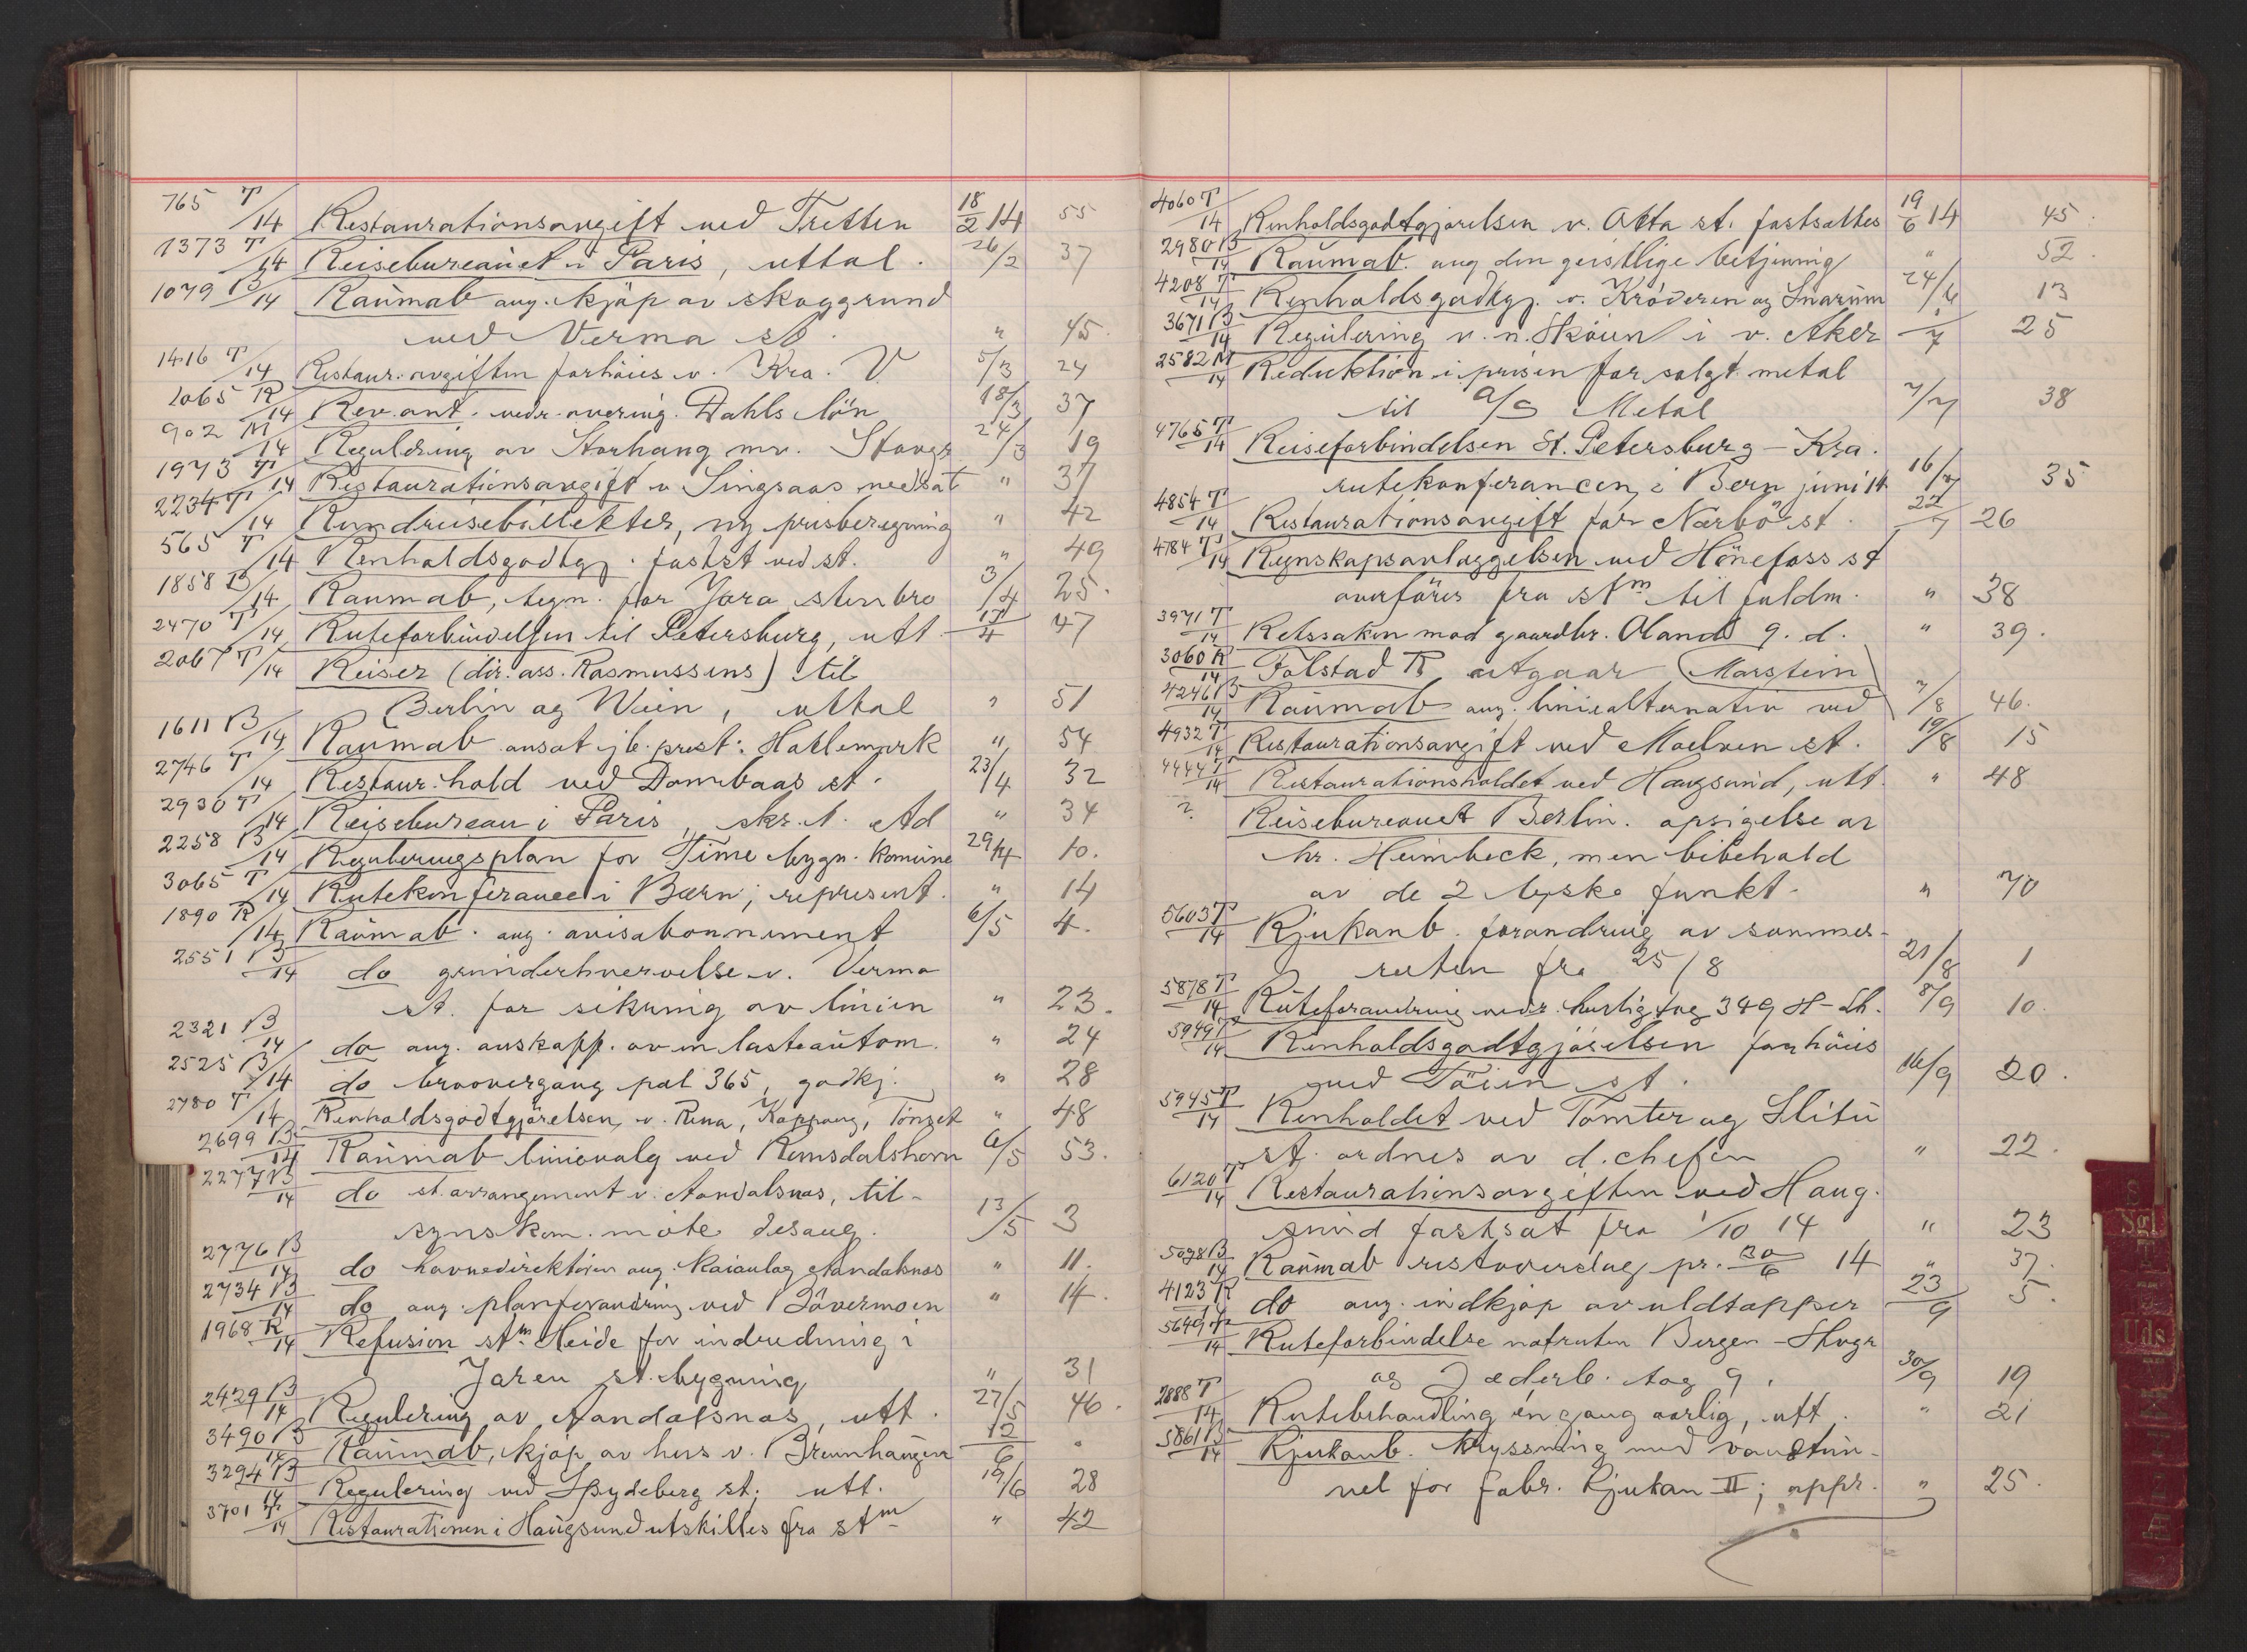 765 T/14 Restaurationsavgift ved Tretten 18/2 14 55
1373 T/14 Reisebureauet i Paris, uttal. 26/2 37
1079 B/14 Raumab ang. kjöp av skoggrund
ved Verma st. " 45.
1416 T/14 Restaur. avgiften forhöies v. Kra. V 5/3 24
1065 R/14 Rev. ant. vedr. overing. Dahls lön 18/3 37
902 M/14 Regulering av Storhaug mv. Stavgr 24/3 19
1973 T/14 Restaurationsavgift v Singsaas nedsat " 37
2234 T/14 Rundreisebilletter, ny prisberegning " 42
565 T/14 Renholdsgodtgj. fastst ved st. " 49
1858 B/14 Raumab, tegn. for Jora stenbro 3/4 25.
2470 T/14 Ruteforbindelsen til Petersburg, utt. 17/4 47
2067 T/14 Reiser (dir. ass. Rasmussens) til
Berlin og Wien, uttal " 51
1611 B/14 Raumab ansat jb. prest: Hallemark " 54
2746 T/14 Restaur. hold ved Dombaas st. 23/4 32
2930 T/14 Reisebureau i Paris, skr. t. Ad " 34
2258 B/14 Reguleringsplan for Time bygn. komune 29/4 10.
3065 T/14 Rutekonferance i Bern; represent. " 14
1890 R/14 Raumab. ang. avisabonnement 6/5 4.
2551 B/14 do grunderhvervelse v. Verma
st. for sikring av linien " 23.
2321 B/14 do ang. anskaff. av en lasteautom. " 24
2525 B/14 do broovergang pæl 365, godkj. " 28
2780 T/14 Renholdsgodtgjörelsen, v. Rena, Koppang, Tönset " 48
2699 B/14 Raumab linievalg ved Romsdalshorn 6/5 53.
2277 B/14 do st. arrangement v. Aandalsnæs, til-
synskom. möte desang. 13/5 3
2776 B/14 do havnedirektören ang. kaianlæg Aandalsnæs " 11.
2734 B/14 do ang. planforandring ved Bövermoen " 14.
1968 R/14 Refusion stm Heide for indredning i
Jaren st. bygning " 31
2429 B/14 Regulering av Aandalsnæs, utt. 27/5 46.
3490 B/14 Raumab, kjöp av hus v. Brunhaugen 12/6 .
3294 B/14 Regulering ved Spydeberg st; utt. 19/6 28
3701 T/14 Restaurationen i Haugsund utskilles fra stm " 42
4060 T/14 Renholdsgodtgjörelsen v. Otta st. fastsættes 19/6 14 45.
2980 B/14 Raumab. ang den geistlige betjening " 52.
4208 T/14 Renholdsgodtgj. v. Kröderen og Snarum 24/6 13
3671 B/14 Regulering v. n. Sköien i v. Aker /7 25
2582 M/14 Reduktion i prisen for solgt metal
til A/S Metal 7/7 38
4765 T/14 Reiseforbindelsen St. Petersburg – Kra.
rutekonferancen i Bern juni 14 16/7 35
4854 T/14 Restaurationsavgift for Nærbö st. 22/7 26
4784 T/14 Regnskapsavlæggelsen ved Hönefoss st
overföres fra stm til fuldm. " 38
3971 T/14 Retssaken mod gaardbr. Oland 9. d. " 39.
3060 R/14 Folstad R utgaar Marstein
4246 B/14 Raumab ang. liniealternativ ved 7/8 46.
4932 T/14 Restaurationsavgift ved Moelven st. 19/8 15
4444 T/14 Restaurationsholdet ved Haugsund, utt. " 48
? Reisebureauet Berlin. opsigelse av
hr. Heimbeck, men bibehold
av de 2 tyske funkt. " 70
5603 T/14 Rjukanb. forandring av sommer-
ruten fra 25/8 21/8 1
5878 T/14 Ruteforandring vedr. hurtigtog 349 H-Lh. 8/9 10.
5949 T/14 Renholdsgodtgjörelsen forhöies
ved Töien st. 16/9 20.
5945 T/14 Renholdet ved Tomter og Slitu
st. ordnes av d. chefen " 22.
6120 T/14 Restaurationsavgiften ved Haug-
sund fastsat fra 1/10 14 " 23
5098 B/14 Raumab restoverslag pr. 30/6 14 " 37.
4123 R/14 do ang. indkjöp av uldtæpper 23/9 5.
5649 T/14 Ruteforbindelse natruten Bergen – Stvgr
og Jæderb. tog 9. 30/9 19
2888 T/14 Rutebehandling én gang aarlig, utt. " 21
5861 B/14 Rjukanb. krysning med vandtun-
nel for fabr. Rjukan II; appr. " 25.
S
Sgl
T
Uds